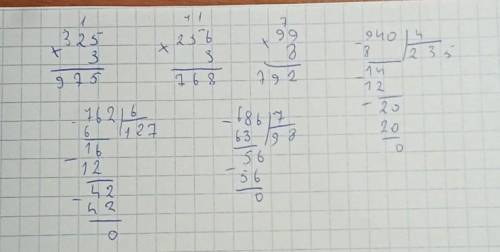 1
325
× 3
975
11
256
× 3
768
7
99
× 8
792
-940 | 4
8 | 235
-14
12
-20
20
0
-762 | 6
6 | 127
-16
12
-42
42
0
-686 | 7
63 | 98
-56
56
0